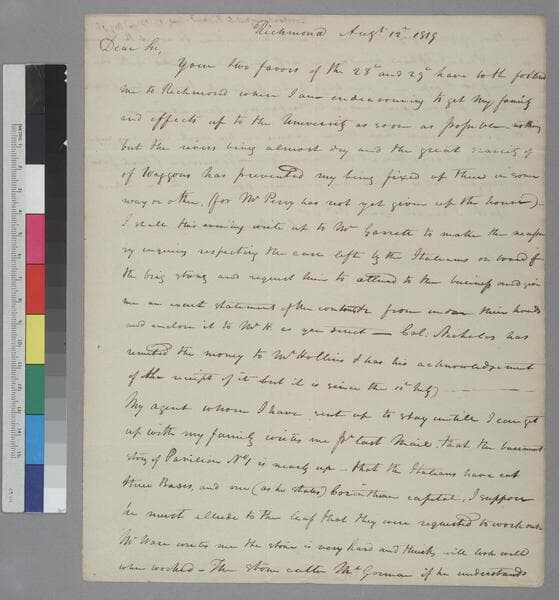 Richmond Augt 12th 1819
Dear Sir,
Your two favors of the 28th and 29th have both followed
me to Richmond where I am endeavouring to get my family
and effects up to the University as soon as possible nothing
but the rivers being almost dry and the great scarcity of
of Waggons has prevented my being fixed up there in some
way or other, (for Mr Perry has not yet given up the house)–
I shall this evening write up to Mr Garrett to make the necessa
ry enquiries respecting the case left by the Italians on board of
the brig strong and request him to attend to the business and give
me an exact statement of the contents from under their hands
and enclose it to Mr H. as you direct — Col: Nicholas has
remitted the money to Mr Hollins & has his acknowledgement
of the receipt of it but it is since the 1st July)
My agent whom I have sent up to stay untill I can get
up with my family writes me pr last Mail, that the basement
story of Pavilion No 1 is nearly up – that the Italians have cut
three Bases, and one (as he states) Corinthian capital, I suppose
he must allude to the leaf that they were requested to work out
Mr Ware writes me the stone is very hard and thinks will look well
when worked – The stone cutter Mr Gorman if he understands